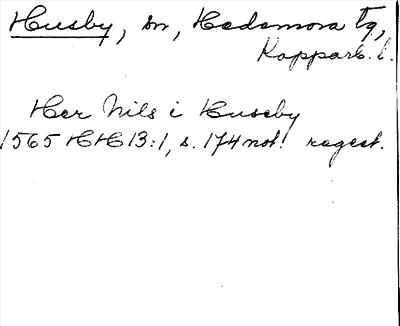 Husby, sn, Hedemora tg,
Kopparb. l.
Her Nils i Huseby
1565 HH 13:1, s. 174 not. regest.